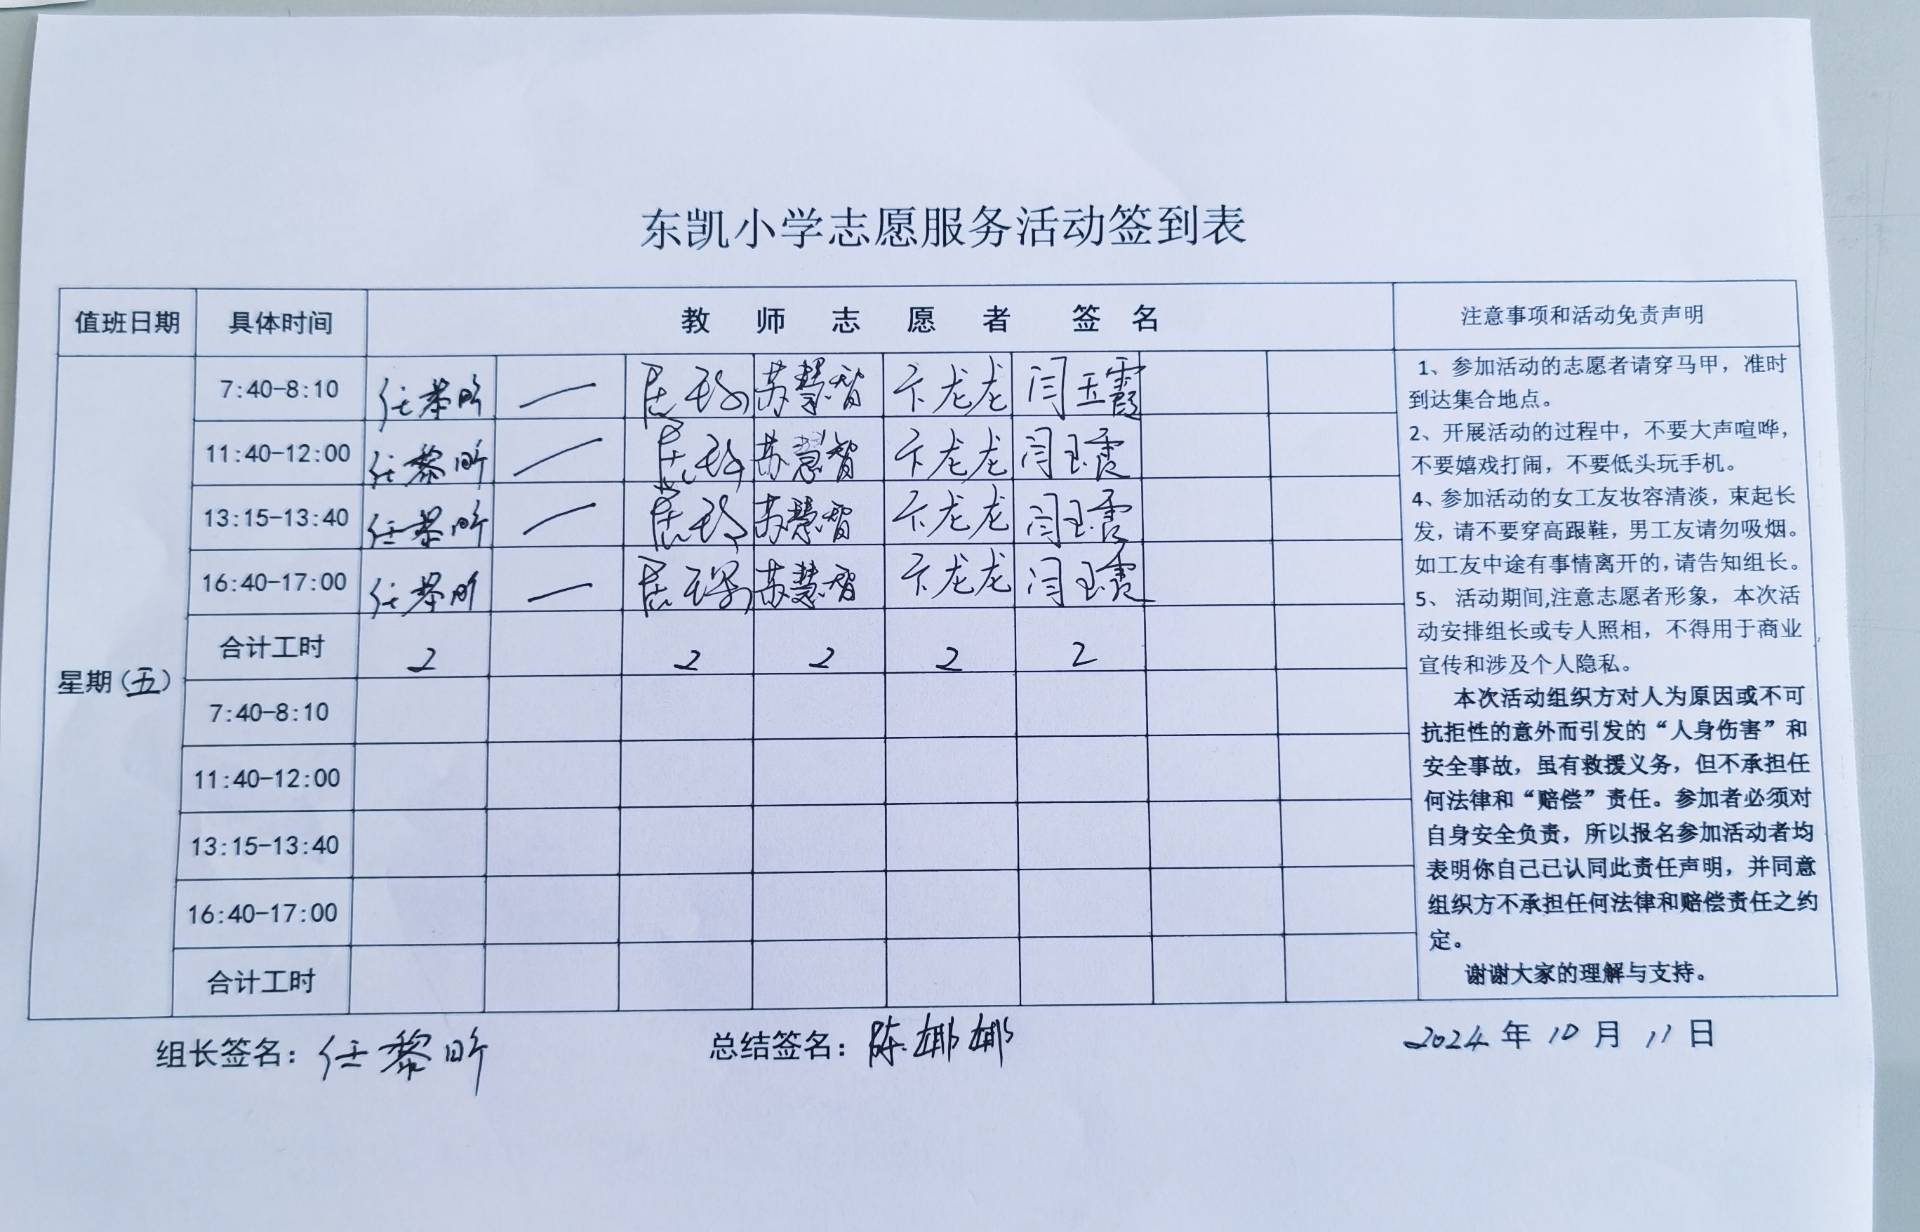 东凯小学志愿服务活动签到表
值班日期 具体时间 教师志愿者 签名 注意事项和活动免责声明
星期(五)
7:40-8:10 任黎昕 — 苏慧智 卞龙龙 闫玉霞
11:40-12:00 任黎昕 — 苏慧智 卞龙龙 闫玉霞
13:15-13:40 任黎昕 — 苏慧智 卞龙龙 闫玉霞
16:40-17:00 任黎昕 — 苏慧智 卞龙龙 闫玉霞
合计工时 2 2 2 2 2
7:40-8:10
11:40-12:00
13:15-13:40
16:40-17:00
合计工时
1、参加活动的志愿者请穿马甲，准时
到达集合地点。
2、开展活动的过程中，不要大声喧哗，
不要嬉戏打闹，不要低头玩手机。
4、参加活动的女工友妆容清淡，束起长
发，请不要穿高跟鞋，男工友请勿吸烟。
如工友中途有事情离开的,请告知组长。
5、 活动期间,注意志愿者形象，本次活
动安排组长或专人照相，不得用于商业
宣传和涉及个人隐私。
本次活动组织方对人为原因或不可
抗拒性的意外而引发的“人身伤害”和
安全事故，虽有救援义务，但不承担任
何法律和“赔偿”责任。参加者必须对
自身安全负责，所以报名参加活动者均
表明你自己己认同此责任声明，并同意
组织方不承担任何法律和赔偿责任之约
定。
谢谢大家的理解与支持。
组长签名：任黎昕 总结签名：陈娜娜 2024年10月11日